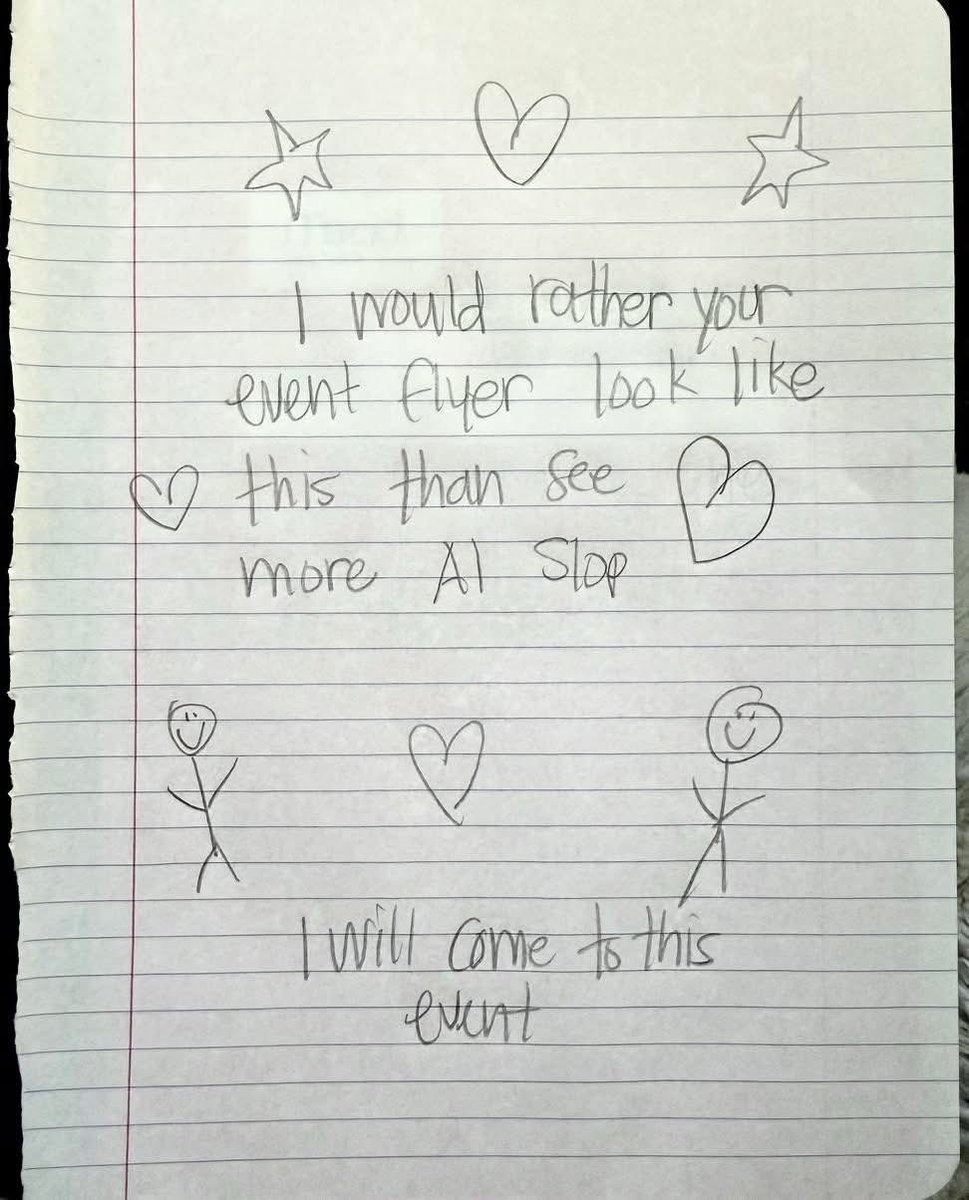 I would rather your
event flyer look like
this than see
more AI Slop
I will come to this
event